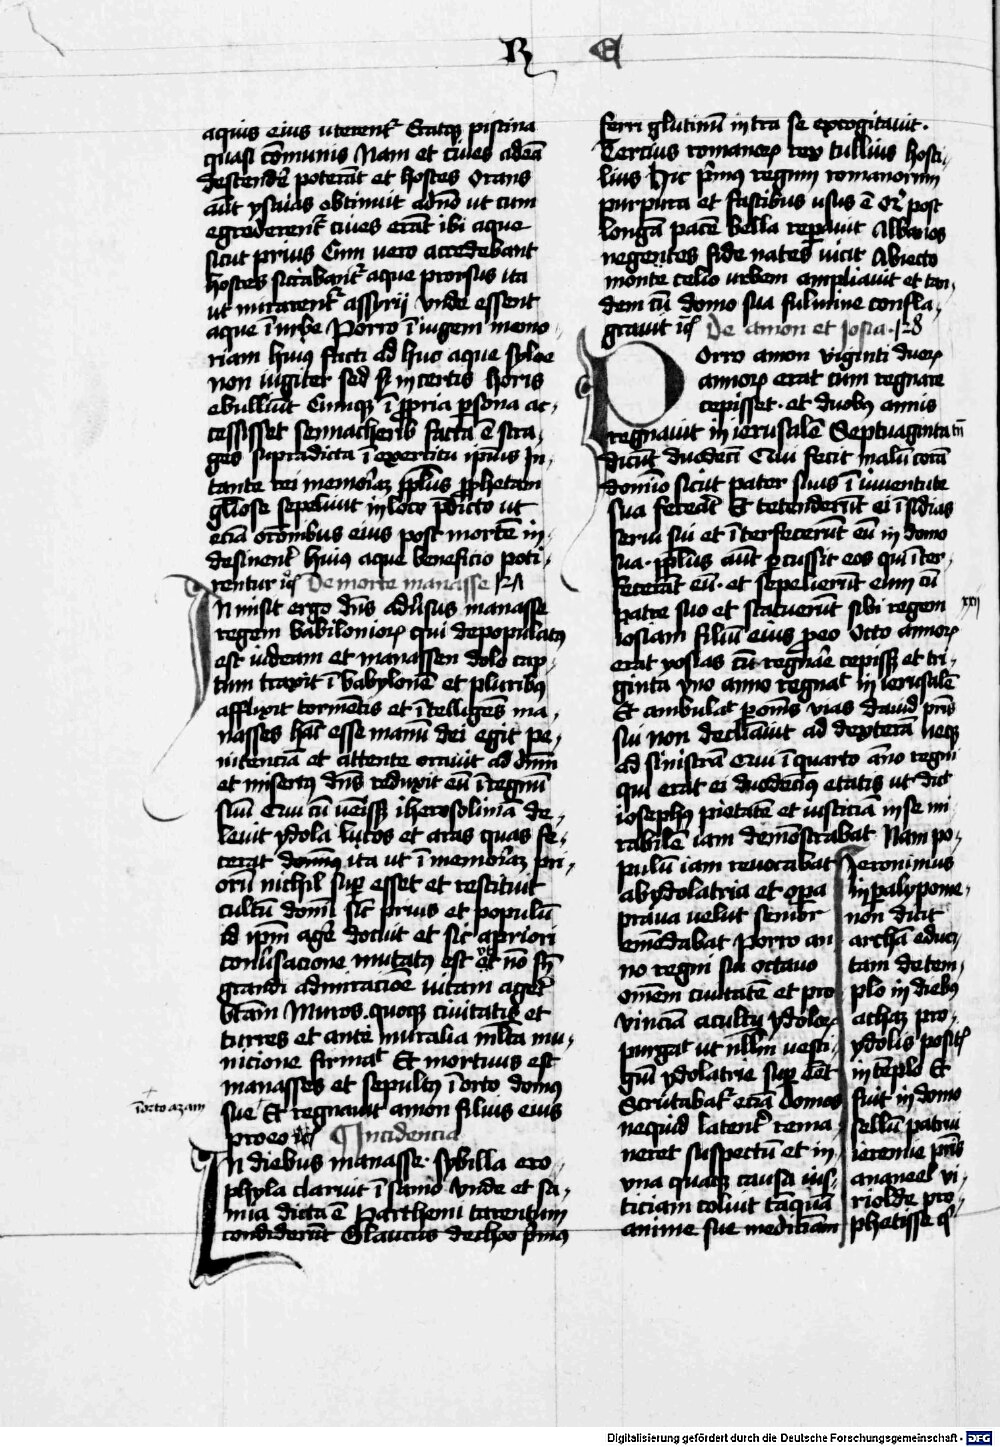 R E
aquis eius uterent᷑ Eratqꝫ piscina
quasi cōmunis Nam et ciues ad eā
descendē poterāt et hostes Orans
aūt ysaias obtinuit a dn̄o ut cum
egrederent᷑ ciues erāt ibi aque
sicut prius Cum vero accedebant
hostes siccabant᷑ aque prorsus ita
ut mirarent᷑ assyrij vnde essent
aque ī vrbe Porro ī iugem memo
riam huiꝰ facti ad huc aque syloe
non iugiter sed sꝫ in certis horis
ebulliūt Cumqꝫ ī ꝓpria ꝑsona ac
cessisset sennacherib facta ē stra
ges supradicta ī exercitu ipsius In
tante rei memoriaꝫ ppl̄us ꝓphetam
gl̄iose sepeliuit in loco p̄dicto ut
eciā or̄onibus eius post mortē in
desinent᷑ huiꝰ aque beneficio poti
rentur De morte manasse 127
Inmisit ergo dn̄s aduersus manasse
regem babilonioꝝ qui depopulatꝰ
est iudeam et manassen dolo cap
tum traxit ī babylonē et pluribꝰ
afflixit tormētis et ītelligēs ma
nasses hāc esse manū dei egit pe
nitenciā et attente orauit ad dn̄m
et misertꝰ dn̄s reduxit eū ī regnū
suū Qui cū venissꝫ iherosolimā de
leuit ydola lucos et aras quas fe
cerat domīꝰ ita ut ī memoriaꝫ pri
orū nichil sup̄ esset et restituit
cultū domī sic̄ prius et populū
id ip̄m agē docuit et sic a priori
conūsacione mutatꝰ est
grandi admiracioē vitam ageret
btām Muros quoqꝫ ciuitatis et
turres et ante muralia ml̄ta mu
nicione firmat Et mortuus est
manasses et sepultꝰ ī orto domꝰ
ī orto azam
sue Et regnauit amon filius eius
pro eo Incidencia
In diebus manasse sybilla ero
phyla claruit ī samo vnde et sa
mia dicta ē Partheni tarentum
condiderūt Glaucus de choo p̄mus
ferri glutinū intra se excogitauit
Tercius romanoꝝ rex tullius hosti
lius Hic p̄mus regum romanorum
purpura et fascibus usus ē post
longā pacē bella reparauit Albanos
negentes fidenates vicit Adiecto
monte celio urbem ampliauit et tan
dem cū domo sua fulmine confla
grauit De amon et iosia 128
Porro amon viginti duoꝝ
annoꝝ erat cum regnare
cepisset et duobꝰ annis
regnauit in ierusalē Septuaginta tn̄
dicūt duodecī Qui fecit malū corā
domīo sicut pater suus ī iuuentute
sua fecerat Et tetenderūt ei īsidias
serui sui et īterfecerūt eū in domo
sua ppl̄us aūt ꝑcussit eos qui īter
fecerāt eū et sepelierūt eum cū
patre suo et statuerūt sibi regem
xxij
iosiam filiū eius ꝓ eo Octo annoꝝ
erat yosias cū regnare cepissꝫ et tri
ginta vno anno regnat in ierusalē
Et ambulat ꝑ om̄s vias dauid pr̄is
sui non declīauit ad dexterā neqꝫ
ad sinistrā Qui ī quarto anno regni
qui erat ei duodecimꝰ etatis ut dicit
iosephꝰ pietatē et iusticiā in se mi
rabilē iam demōstrabat Nam po
pulū iam reuocabat
ab ydolatria et opa
praua velut senior
emēdabat Porro an
no regni sui octauo
omēm ciuitatē et pro
vinciā a cultu ydoloꝝ
purgat ut nullū vesti
giū ydolatrie sup eēt
Scrutabat᷑ eciā domos
ne quid latent᷑ rema
neret suspectū et in
vna quaqꝫ causa ius
ticiam coluit tāquā
anime sue medicinam
Jeronimus
in palypome
non dicit
archā educ
tam de tem
plo in diebꝰ
achaz pro
ydolis positꝭ
in tēplo Et
fuit in domo
sellū patrui
ieremie pr̄is
ananeel vi
ri olde pro
phetisse
Digitalisierung gefördert durch die Deutsche Forschungsgemeinschaft - DFG